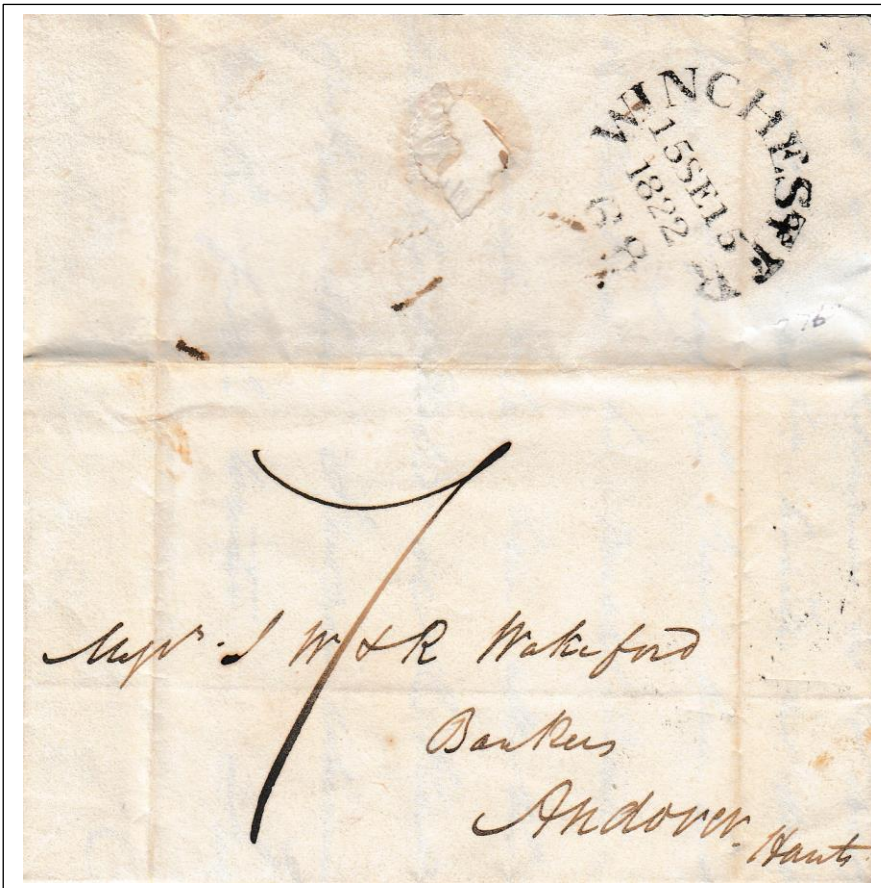 WINCHESTER
15SE15
1822
68
7
Messrs. J W & R Wakeford
Bankers
Andover.
Hants.